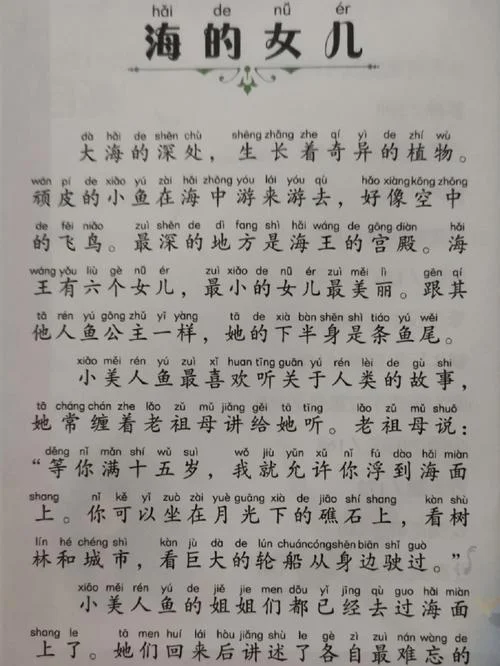 hǎi de nǚ ér
海的女儿
dà hǎi de shēn chù shēng zhǎng zhe qí yì de zhí wù
大海的深处，生长着奇异的植物。
wán pí de xiǎo yú zài hǎi zhōng yóu lái yóu qù hǎo xiàng kōng zhōng
顽皮的小鱼在海中游来游去，好像空中
de fēi niǎo zuì shēn de dì fang shì hǎi wáng de gōng diàn hǎi
的飞鸟。最深的地方是海王的宫殿。海
wáng yǒu liù gè nǚ ér zuì xiǎo de nǚ ér zuì měi lì gēn qí
王有六个女儿，最小的女儿最美丽。跟其
tā rén yú gōng zhǔ yī yàng tā de xià bàn shēn shì tiáo yú wěi
他人鱼公主一样，她的下半身是条鱼尾。
xiǎo měi rén yú zuì xǐ huan tīng guān yú rén lèi de gù shi
小美人鱼最喜欢听关于人类的故事，
tā cháng chán zhe lǎo zǔ mǔ jiǎng gěi tā tīng lǎo zǔ mǔ shuō
她常缠着老祖母讲给她听。老祖母说：
děng nǐ mǎn shí wǔ suì wǒ jiù yǔn xǔ nǐ fú dào hǎi miàn
“等你满十五岁，我就允许你浮到海面
shang nǐ kě yǐ zuò zài yuè guāng xià de jiāo shí shang kàn shù
上。你可以坐在月光下的礁石上，看树
lín hé chéng shì kàn jù dà de lún chuán cóng shēn biān shǐ guò
林和城市，看巨大的轮船从身边驶过。”
xiǎo měi rén yú de jiě jie men dōu yǐ jīng qù guo hǎi miàn
小美人鱼的姐姐们都已经去过海面
shang le tā men huí lái hòu jiǎng shù le gè zì zuì nán wàng de
上了。她们回来后讲述了各自最难忘的